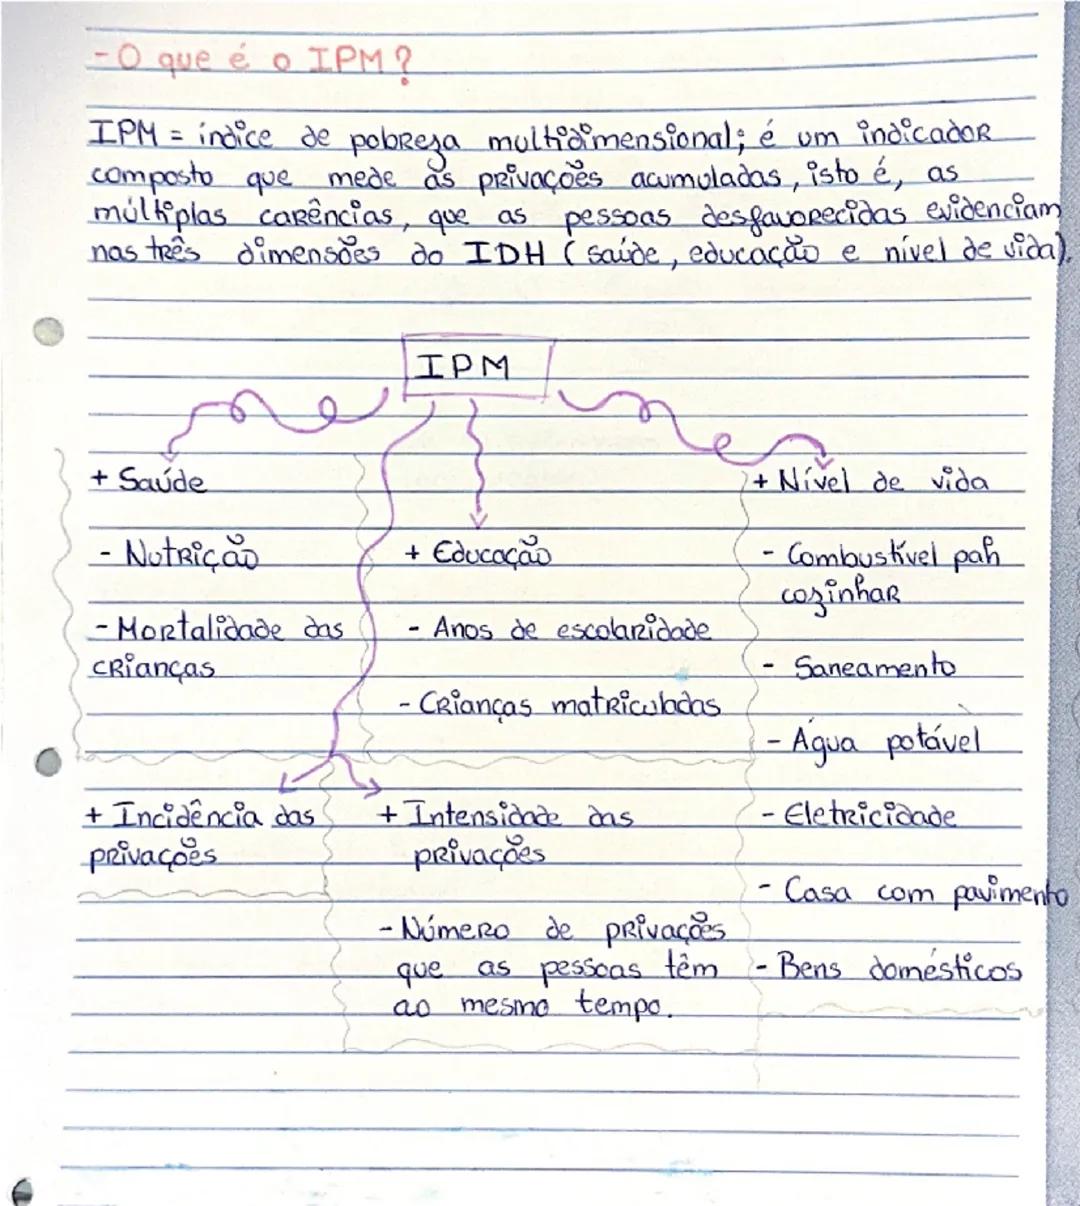 - O que é o IPM?
IPM = índice de pobreza multidimensional; é um indicador
composto que mede as privações acumuladas, isto é, as
múltiplas carências, que as pessoas desfavorecidas evidenciam
nas três dimensões do IDH (saúde, educação e nível de vida).
IPM
+ Saúde
- Nutrição
- Mortalidade das
crianças
+ Educação
- Anos de escolaridade
- Crianças matriculadas
+ Nível de vida
- Combustível
cozinhar
- Saneamento
- Água potável
- Eletricidade
- Casa com pavimento
- Bens domésticos
+ Incidência das
privações
+ Intensidade das
privações
- Número de privações
que as pessoas têm
ao mesmo tempo.